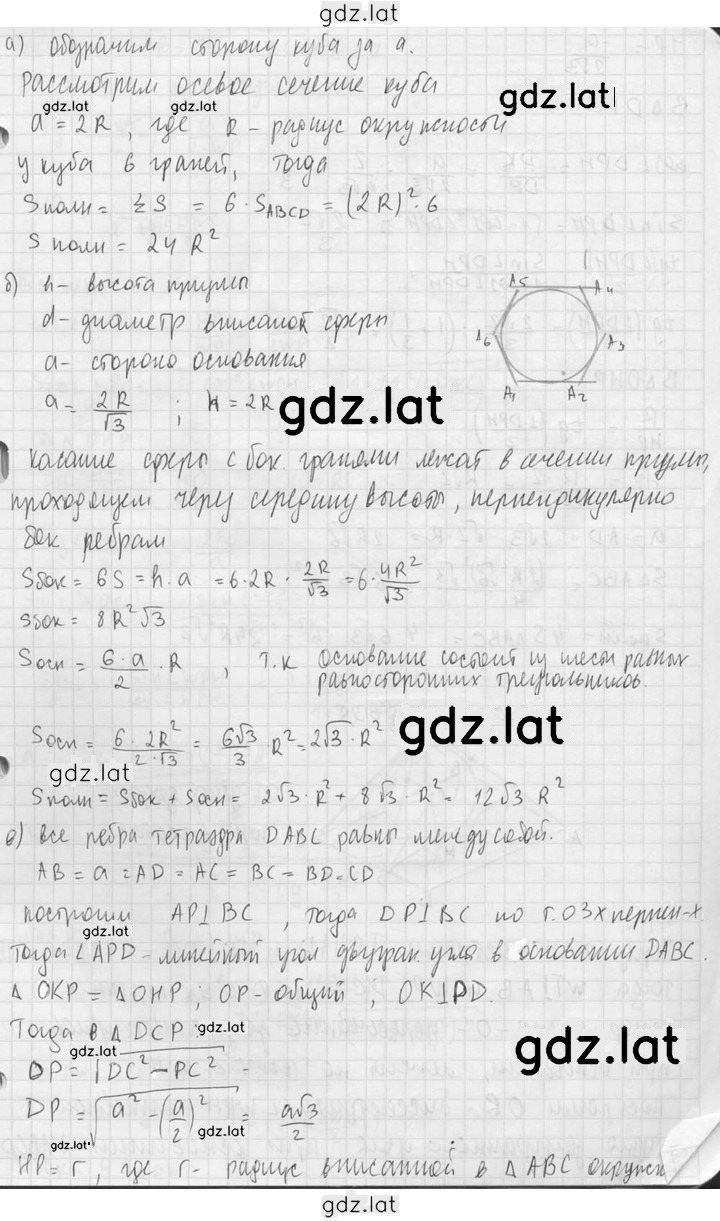 gdz.lat
а) обозначим сторону куба за a.
Рассмотрим осевое сечение куба
gdz.lat gdz.lat gdz.lat
a = 2R, где R - радиус окружности
у куба 6 граней, тогда
Sполн = ΣS = 6·S_ABCD = (2R)²·6
S полн = 24 R²
б) h - высота призмы
d - диаметр вписаной сферы
a - сторона основания
a = 2R/√3 ; h = 2R
A5 A4
A6 A3
A1 A2
gdz.lat
Касание сферы с бок. гранями лежат в сечении призмы,
проходящем через середину высоты, перпендикулярно
бок ребрам
Sбок = 6S = h·a = 6·2R · 2R/√3 = 6· 4R²/√3
Sбок = 8R²√3
Sосн = 6·a/2 · R , т.к основание состоит из шести равных
равносторонних треугольников.
Sосн = 6·2R²/2·√3 = 6√3/3 R² = 2√3·R²
gdz.lat gdz.lat
Sполн = Sбок + Sосн = 2√3·R² + 8√3·R² = 12√3 R²
в) все ребра тетраэдра DABC равны между собой.
AB = a = AD = AC = BC = BD = CD
построим AP⊥BC, тогда DP⊥BC по т.о 3х перпен-х.
gdz.lat
Тогда ∠APD - линейный угол двугран. угла в основании DABC.
△OKP = △OHP : OP - общий, OK⊥PD.
Тогда в △DCP : gdz.lat
gdz.lat gdz.lat
DP = √DC² - PC² =
DP = √a² - (a/2)² = a√3/2
gdz.lat gdz.lat
HP = r, где r - радиус вписанной в △ABC окружн
gdz.lat